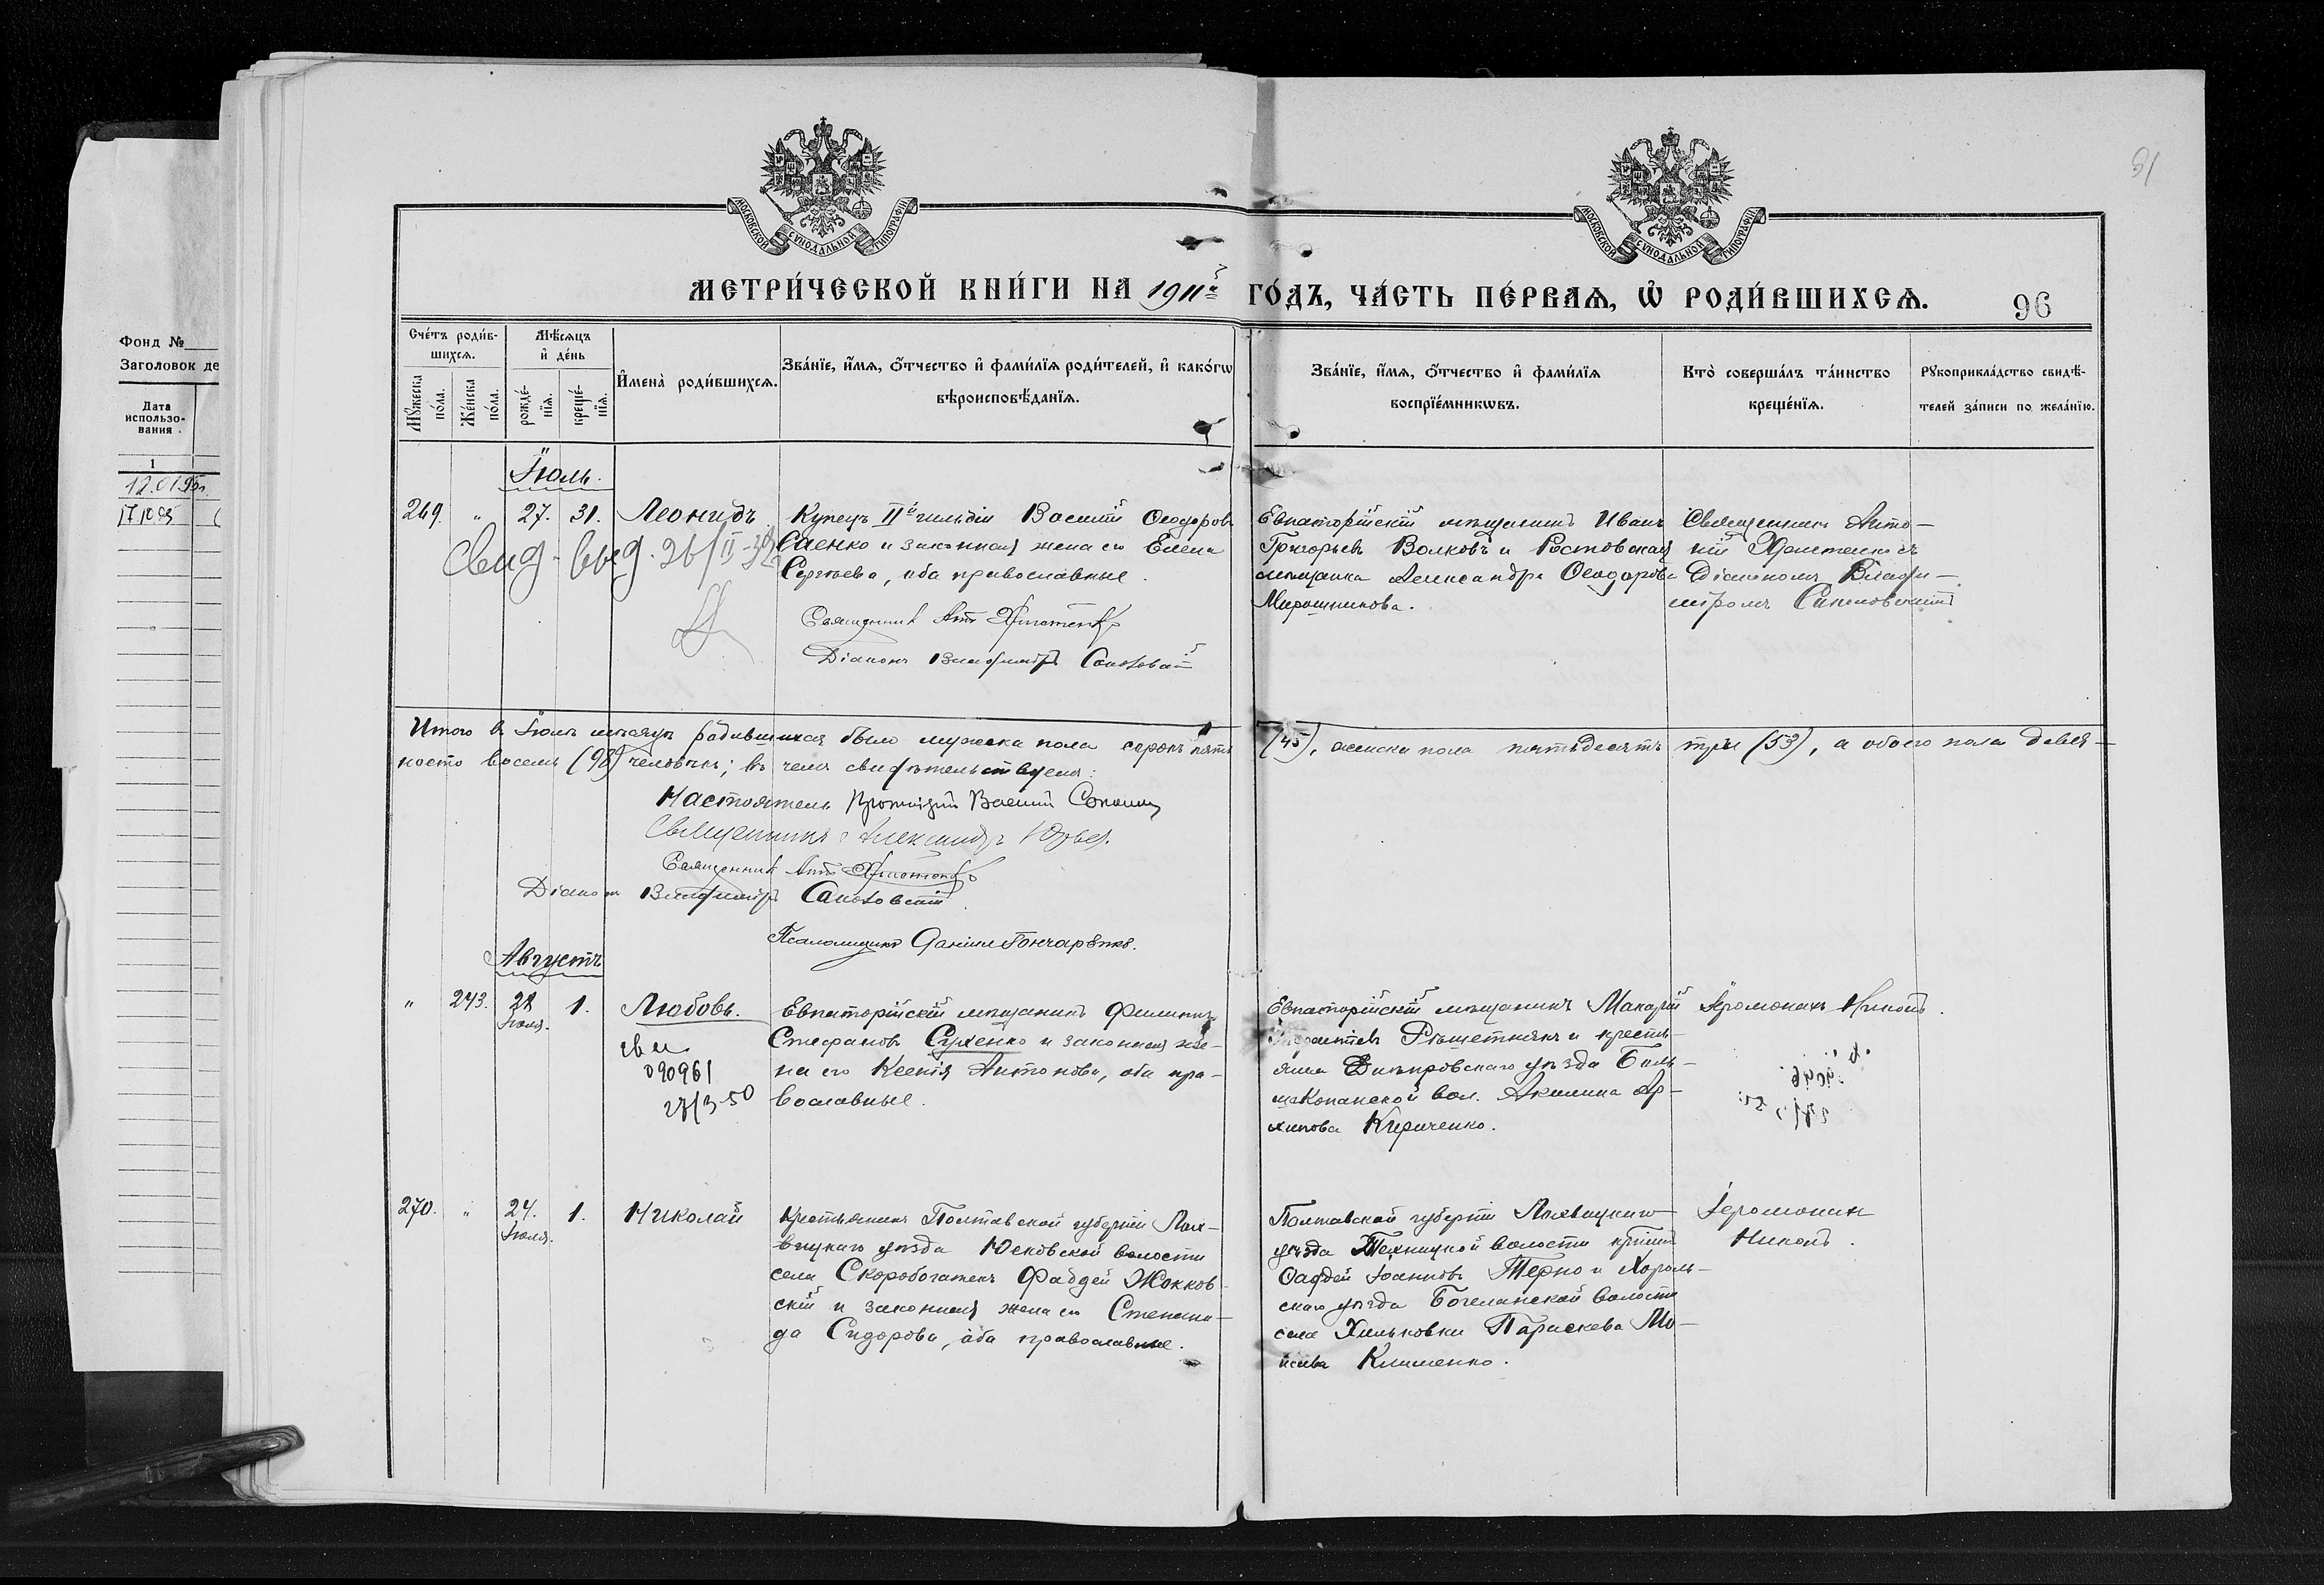 МОСКОВСКОЙ СѴНОДАЛЬНОЙ ТИПОГРАФІИ
МОСКОВСКОЙ СѴНОДАЛЬНОЙ ТИПОГРАФІИ
91
МЕТРИ́ЧЕСКОЙ КНИ́ГИ НА 1911й ГО́ДЪ, ЧА́СТЬ ПЕ́РВАЯ, Ѡ РОДИ́ВШИХСЯ.
96
Фонд №
Заголовок де
Дата
использо-
вания
1
12.01.95г.
Сче́тъ роди́в-
шихся.
Мѣ́сяцъ
и де́нь
Му́жеска
по́ла.
Же́нска
по́ла.
рожде́-
нїя.
креще́-
нїя.
И҆мена̀ роди́вшихся.
Зва́нїе, и҆́мя, о҆́тчество и҆ фами́лїя роди́телей, и҆ како́гѡ
вѣроисповѣ́данїя.
Зва́нїе, и҆́мя, о҆́тчество и҆ фами́лїя
воспрїе́мникѡвъ.
Кто̀ соверша́лъ та́инство
креще́нїя.
Рꙋкоприкла́дство свидѣ́-
телей за́писи по жела́нїю.
Іюль.
269. " 27. 31. Леонидъ
Купецъ IIй гильдіи Василій Ѳеодоровъ
Саенко и законная жена его Елена
Сергѣева, оба православные.
Свид. выд. 26/II-
Священникъ Ант.
Діаконъ Владиміръ
Евпаторійскій мѣщанинъ Иванъ
Григорьевъ Волковъ и Ростовская
мѣщанка Александра Ѳеодорова
Мирошникова.
Священникъ Анто-
ній
Діакономъ Влади-
міромъ
Итого въ Іюлѣ мѣсяцѣ родившихся было мужеска пола сорокъ пять (45), женска пола пятьдесятъ три (53), а обоего пола девя-
носто восемь (98) человѣкъ; въ чемъ свидѣтельствуемъ:
Настоятель Протоіерей Василій
Священникъ Александръ
Священникъ Ант.
Діаконъ Владиміръ
Псаломщикъ Даніилъ Гончаренко.
Августъ
" 243. 28 Іюля. 1. Любовь.
090961
27/3-50
Евпаторійскій мѣщанинъ Филиппъ
Стефановъ Сухенко и законная же-
на его Ксенія Антонова, оба пра-
вославные.
Евпаторійскій мѣщанинъ Макарій
Рѣшетнякъ и кресть-
янка Днѣпровскаго уѣзда Боль-
шекопанской вол. Акилина Ар-
хипова Кириченко.
Іеромонахъ Никонъ.
270. " 24. Іюля. 1. Николай
Крестьянинъ Полтавской губерніи Лох-
вицкаго уѣзда Юсковской волости
села Скоробогатекъ Фаддей Жоков-
скій и законная жена его Степани-
да Сидорова, оба православные.
Полтавской губерніи Лохвицкаго
уѣзда волости
Фаддей Іоанновъ Терно и Хороль-
скаго уѣзда волости
села Хильковки Параскева Мо-
исеева Клименко.
Іеромонахъ
Никонъ.